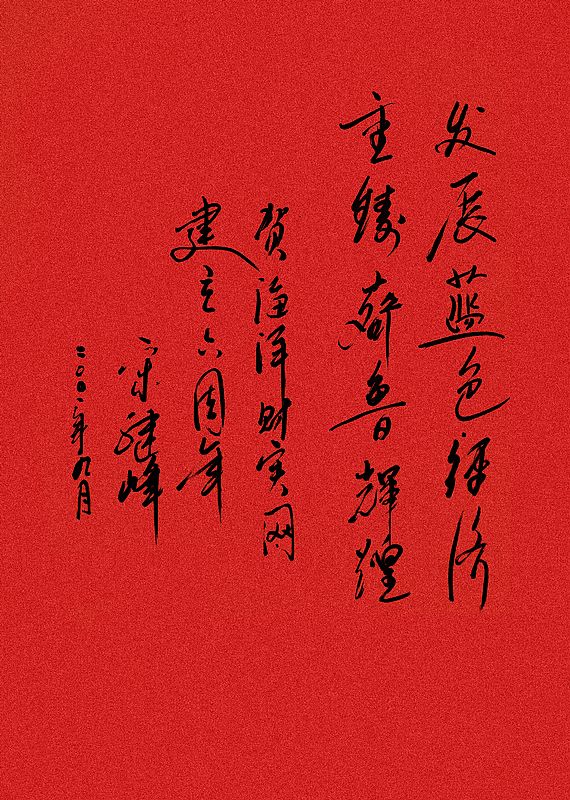 发展蓝色经济
重铸齐鲁辉煌
贺海洋财网
建立六周年
宋继峰
二〇〇年九月